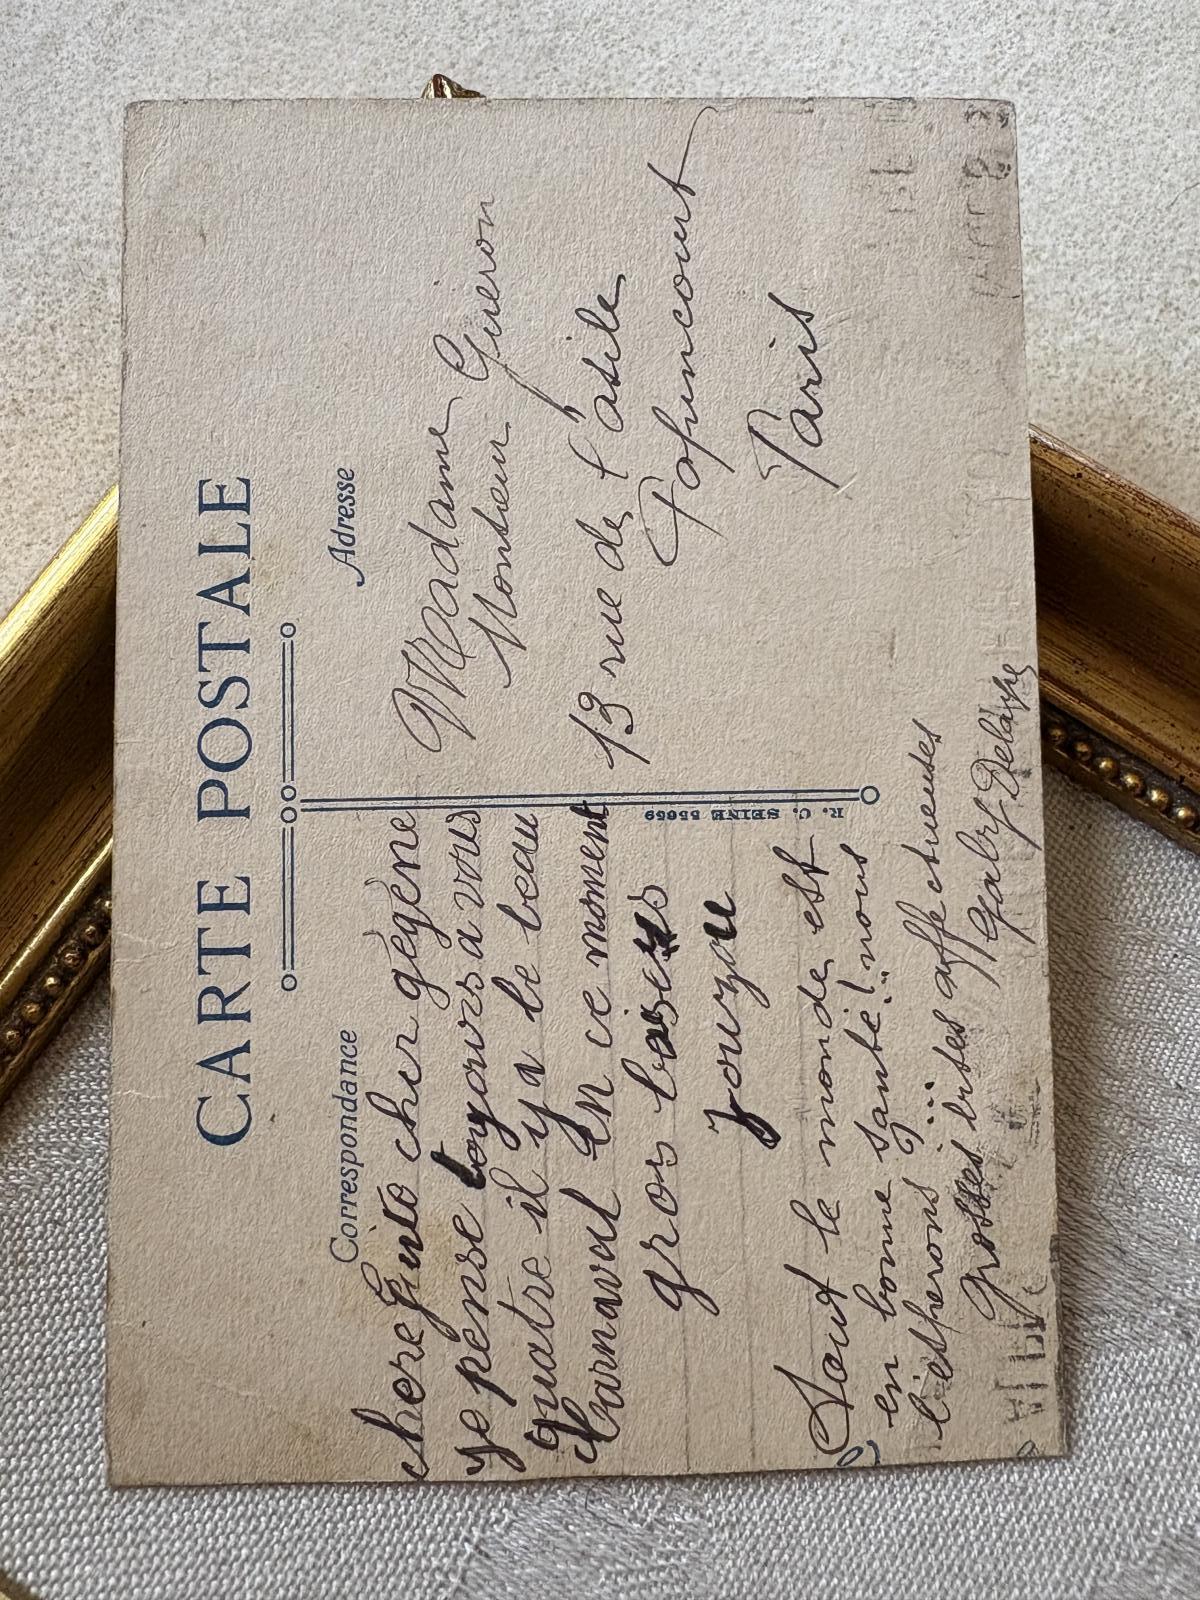 CARTE POSTALE
Correspondance
chere Guito cher gegene
Je pense toyours a vous
quatre il y a le beau
Carnaval En ce moment
gros baisers
Zouzou
Tout le monde est
en bonne santé! nous
l'esperons ...
Grosses bises affectueuses
Gaby
R. C. SEINE 55659
Adresse
Madame
Monsieur Gueron
13 rue de l'asile
Popincourt
Paris